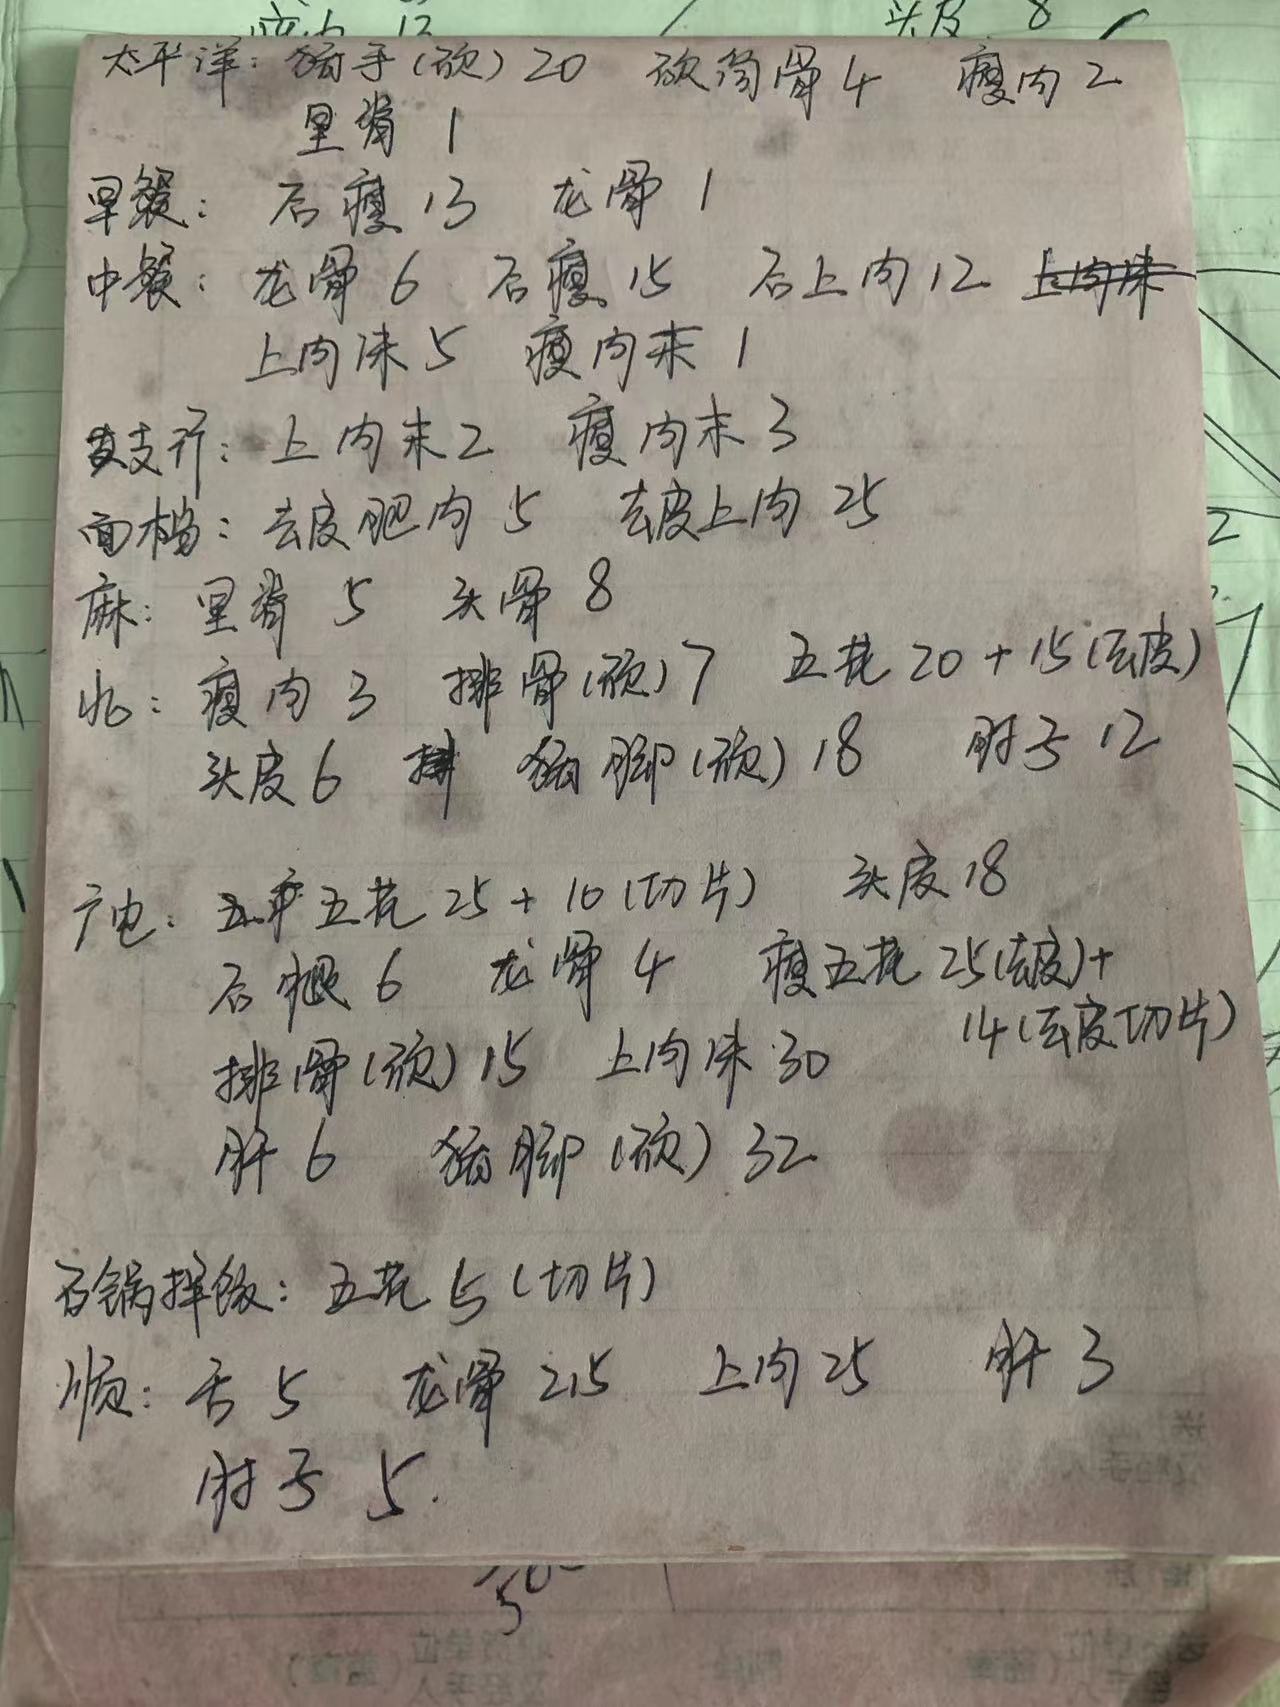 头皮 8
太平洋：猪手（砍）20 砍筒骨 4 瘦肉 2
里脊 1
早餐：后瘦 13 龙骨 1
中餐：龙骨 6 后瘦 15 后上肉 12 上肉沫
上肉沫 5 瘦肉末 1
支行：上肉末 2 瘦肉末 3
面档：去皮肥肉 5 去皮上肉 25
麻：里脊 5 头骨 8
北：瘦肉 3 排骨（砍）7 五花 20 + 15（去皮）
头皮 6 排 猪脚（砍）18 肘子 12
广电：五花 25 + 10（切片） 头皮 18
后腿 6 龙骨 4 瘦五花 25（去皮）+
14（去皮切片）
排骨（砍）15 上肉沫 30
肝 6 猪脚（砍）32
石锅拌饭：五花 5（切片）
顺：舌 5 龙骨 2.5 上肉 25 肝 3
肘子 5.